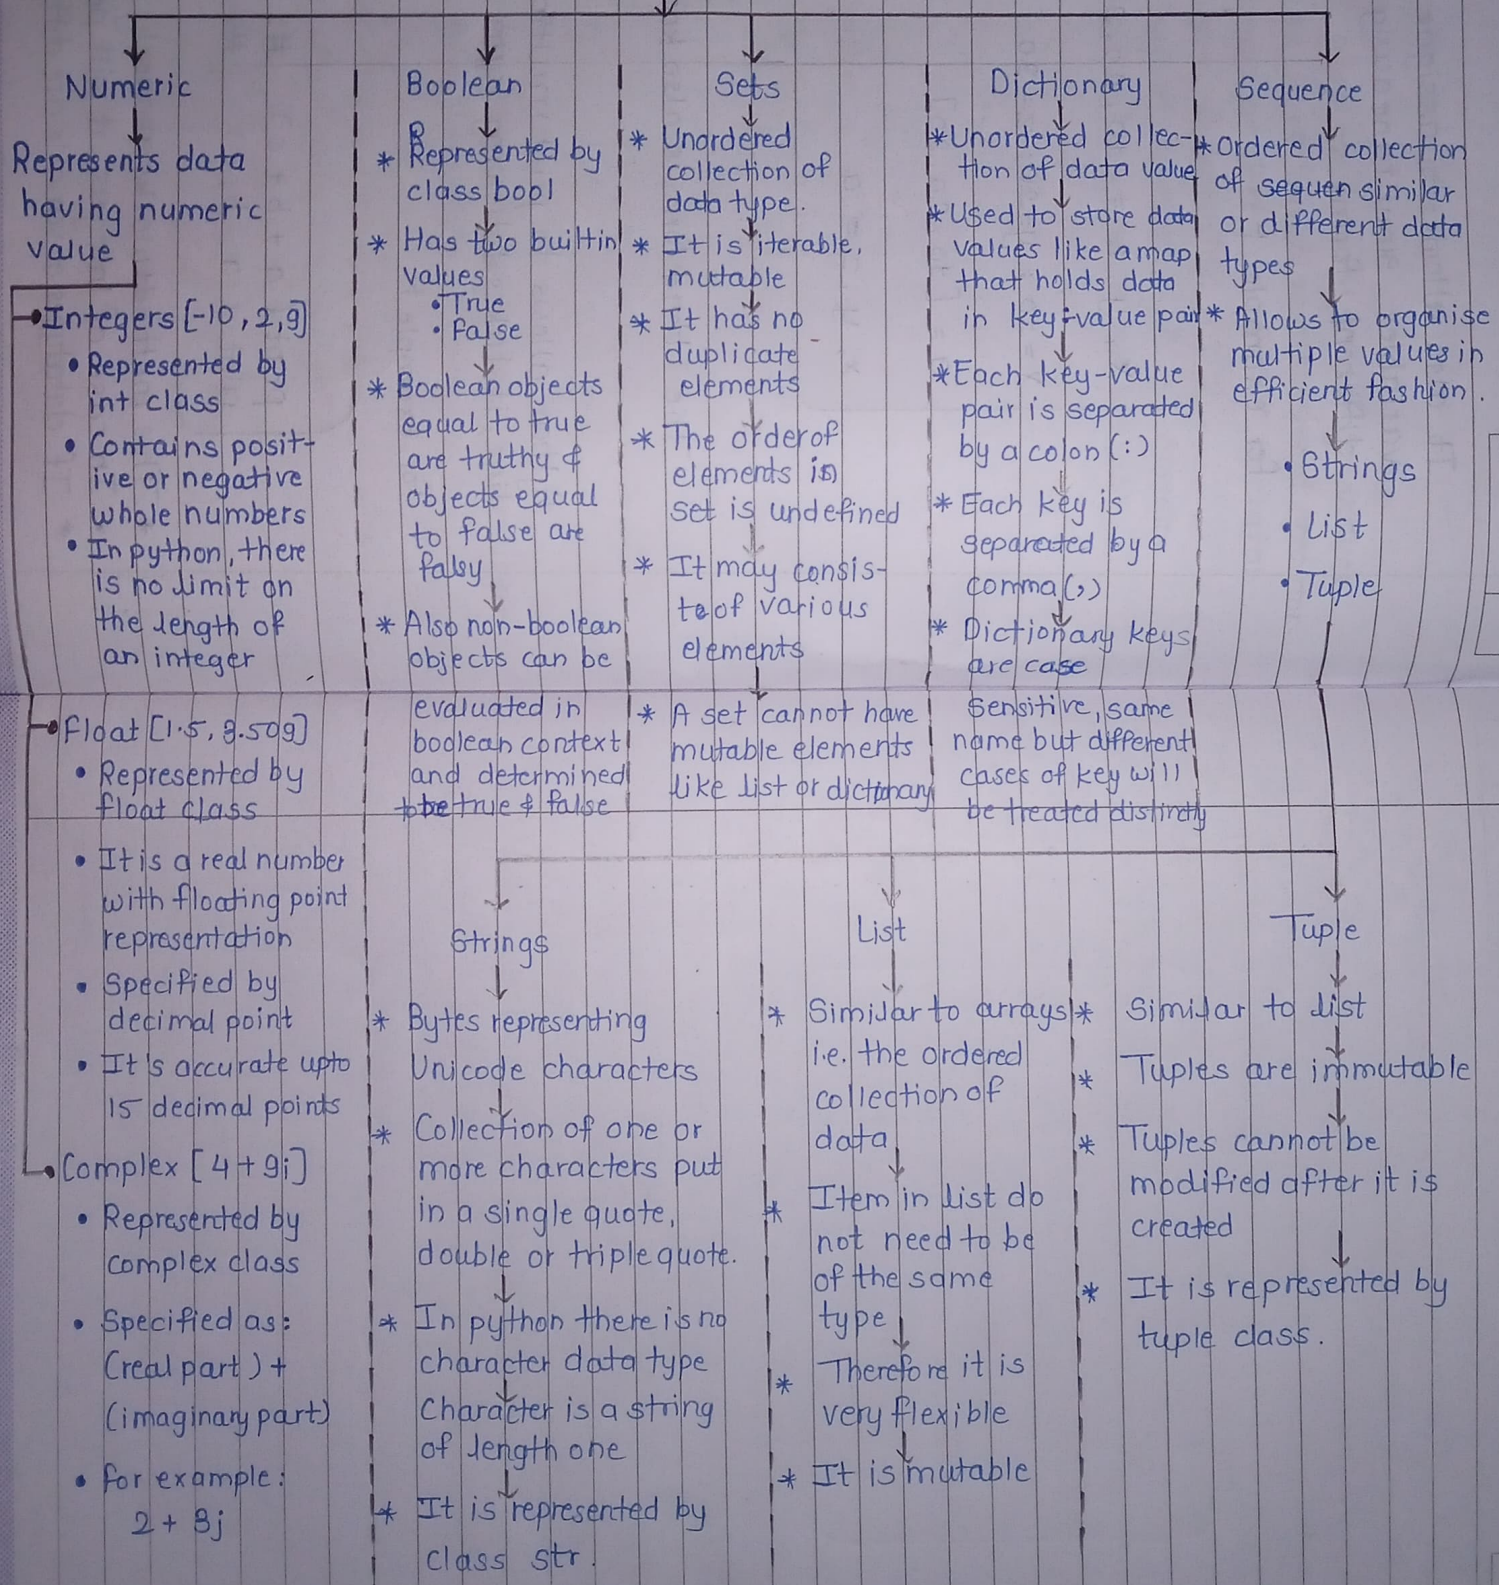 Numeric
Represents data
having numeric
value
Integers [-10, 2, 9]
• Represented by
int class
• Contains posit-
ive or negative
whole numbers
• In python, there
is no limit on
the length of
an integer
Float [1.5, 3.509]
• Represented by
float class
• It is a real number
with floating point
representation
• Specified by
decimal point
• It's accurate upto
15 decimal points
Complex [4+9i]
• Represented by
complex class
• Specified as:
(real part) +
(imaginary part)
• for example:
2 + 3j
Boolean
* Represented by
class bool
* Has two builtin
values
• True
• False
* Boolean objects
equal to true
are truthy &
objects equal
to false are
falsy
* Also non-boolean
objects can be
evaluated in
boolean context
and determined
to be true & false
Sets
* Unordered
collection of
data type.
* It is iterable,
mutable
* It has no
duplicate
elements
* The order of
elements in
set is undefined
* It may consis-
te of various
elements
* A set cannot have
mutable elements
like list or dictionary
Dictionary
* Unordered collec-
tion of data value
* Used to store data
values like a map
that holds data
in key-value pair
* Each key-value
pair is separated
by a colon (:)
* Each key is
separated by a
comma(,)
* Dictionary keys
are case
sensitive, same
name but different
cases of key will
be treated distinctly
Sequence
* ordered collection
of sequen similar
or different data
types
* Allows to organise
multiple values in
efficient fashion.
• Strings
• List
• Tuple
Strings
* Bytes representing
Unicode characters
* Collection of one or
more characters put
in a single quote,
double or triple quote.
* In python there is no
character data type
Character is a string
of length one
* It is represented by
class str.
List
* Similar to arrays
i.e. the ordered
collection of
data
* Item in list do
not need to be
of the same
type
* Therefore it is
very flexible
* It is mutable
Tuple
* Similar to list
* Tuples are immutable
* Tuples cannot be
modified after it is
created
* It is represented by
tuple class.